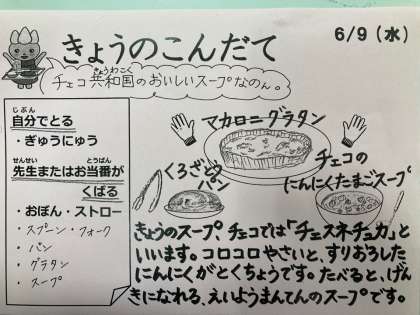 きょうのこんだて
6/9(水)
チェコ共和国のおいしいスープなのん。
きょうわこく
じぶん
自分でとる
・ぎゅうにゅう
せんせい とうばん
先生またはお当番が
くばる
・おぼん・ストロー
・スプーン・フォーク
・パン
・グラタン
・スープ
マカロニグラタン
くろざとう
パン
チェコの
にんにくたまごスープ
きょうのスープ、チェコでは「チェスネチュカ」と
いいます。コロコロやさいと、すりおろした
にんにくがとくちょうです。たべると、げん
きになれる、えいようまんてんのスープです。